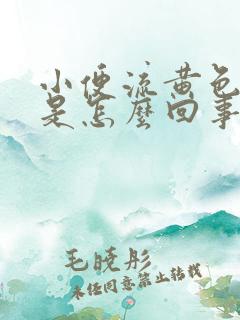 小便流黄色
是怎麽回事
毛晓彤
未经同意禁止转载